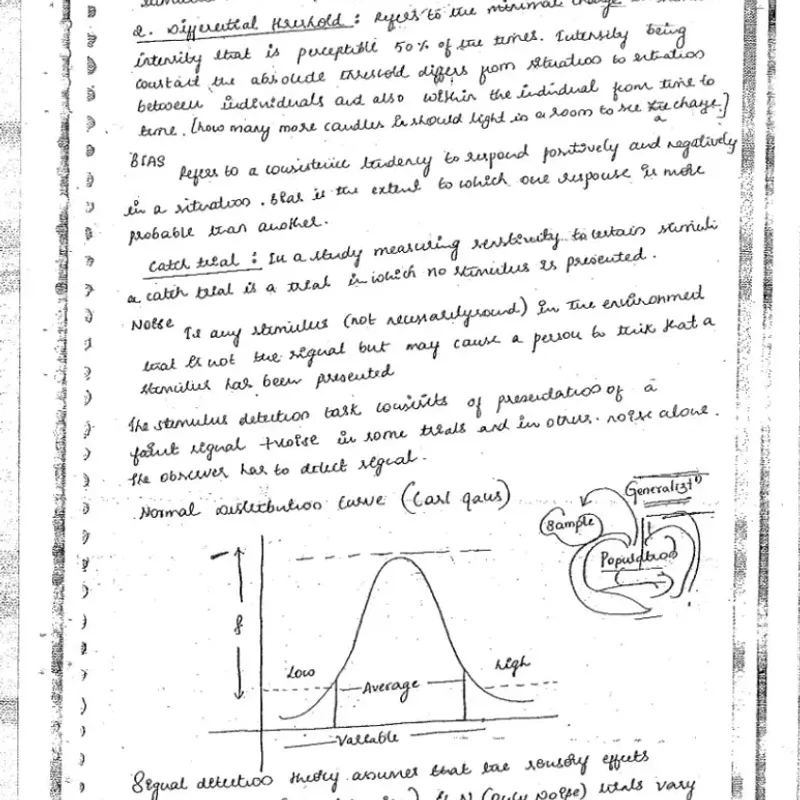 2. Differential threshold : Refers to the minimal change in
intensity that is perceptible 50% of the times. Intensity being
constant the absolute threshold differs from situation to situation
between individuals and also within the individual from time to
time. [how many more candles should light in a room to see a change.]
BIAS
Refers to a consistence tendency to respond positively and negatively
in a situation. Bias is the extent to which one response is more
probable than another.
Catch trial : In a study measuring sensitivity to certain stimuli
a catch trial is a trial in which no stimulus is presented.
Noise
Is any stimulus (not necessarily sound) in the environment
that is not the signal but may cause a person to think that a
stimulus has been presented
The stimulus detection task consists of presentation of a
faint signal +noise in some trials and in others noise alone.
The observer has to detect signal.
Normal distribution curve (Carl gaus)
Generalizt^n
Sample
Population
f
Low
Average
high
Variable
Signal detection theory assumes that the sensory effects
N (only Noise) trials vary